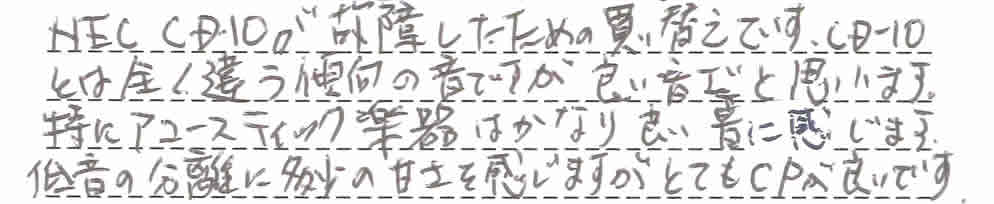 NEC CD-10が故障したための買い替えです。CD-10
とは全く違う傾向の音ですが良い音だと思います。
特にアコースティック楽器はかなり良い音に感じます。
低音の分離に多少の甘さを感じますがとてもCPが良いです。